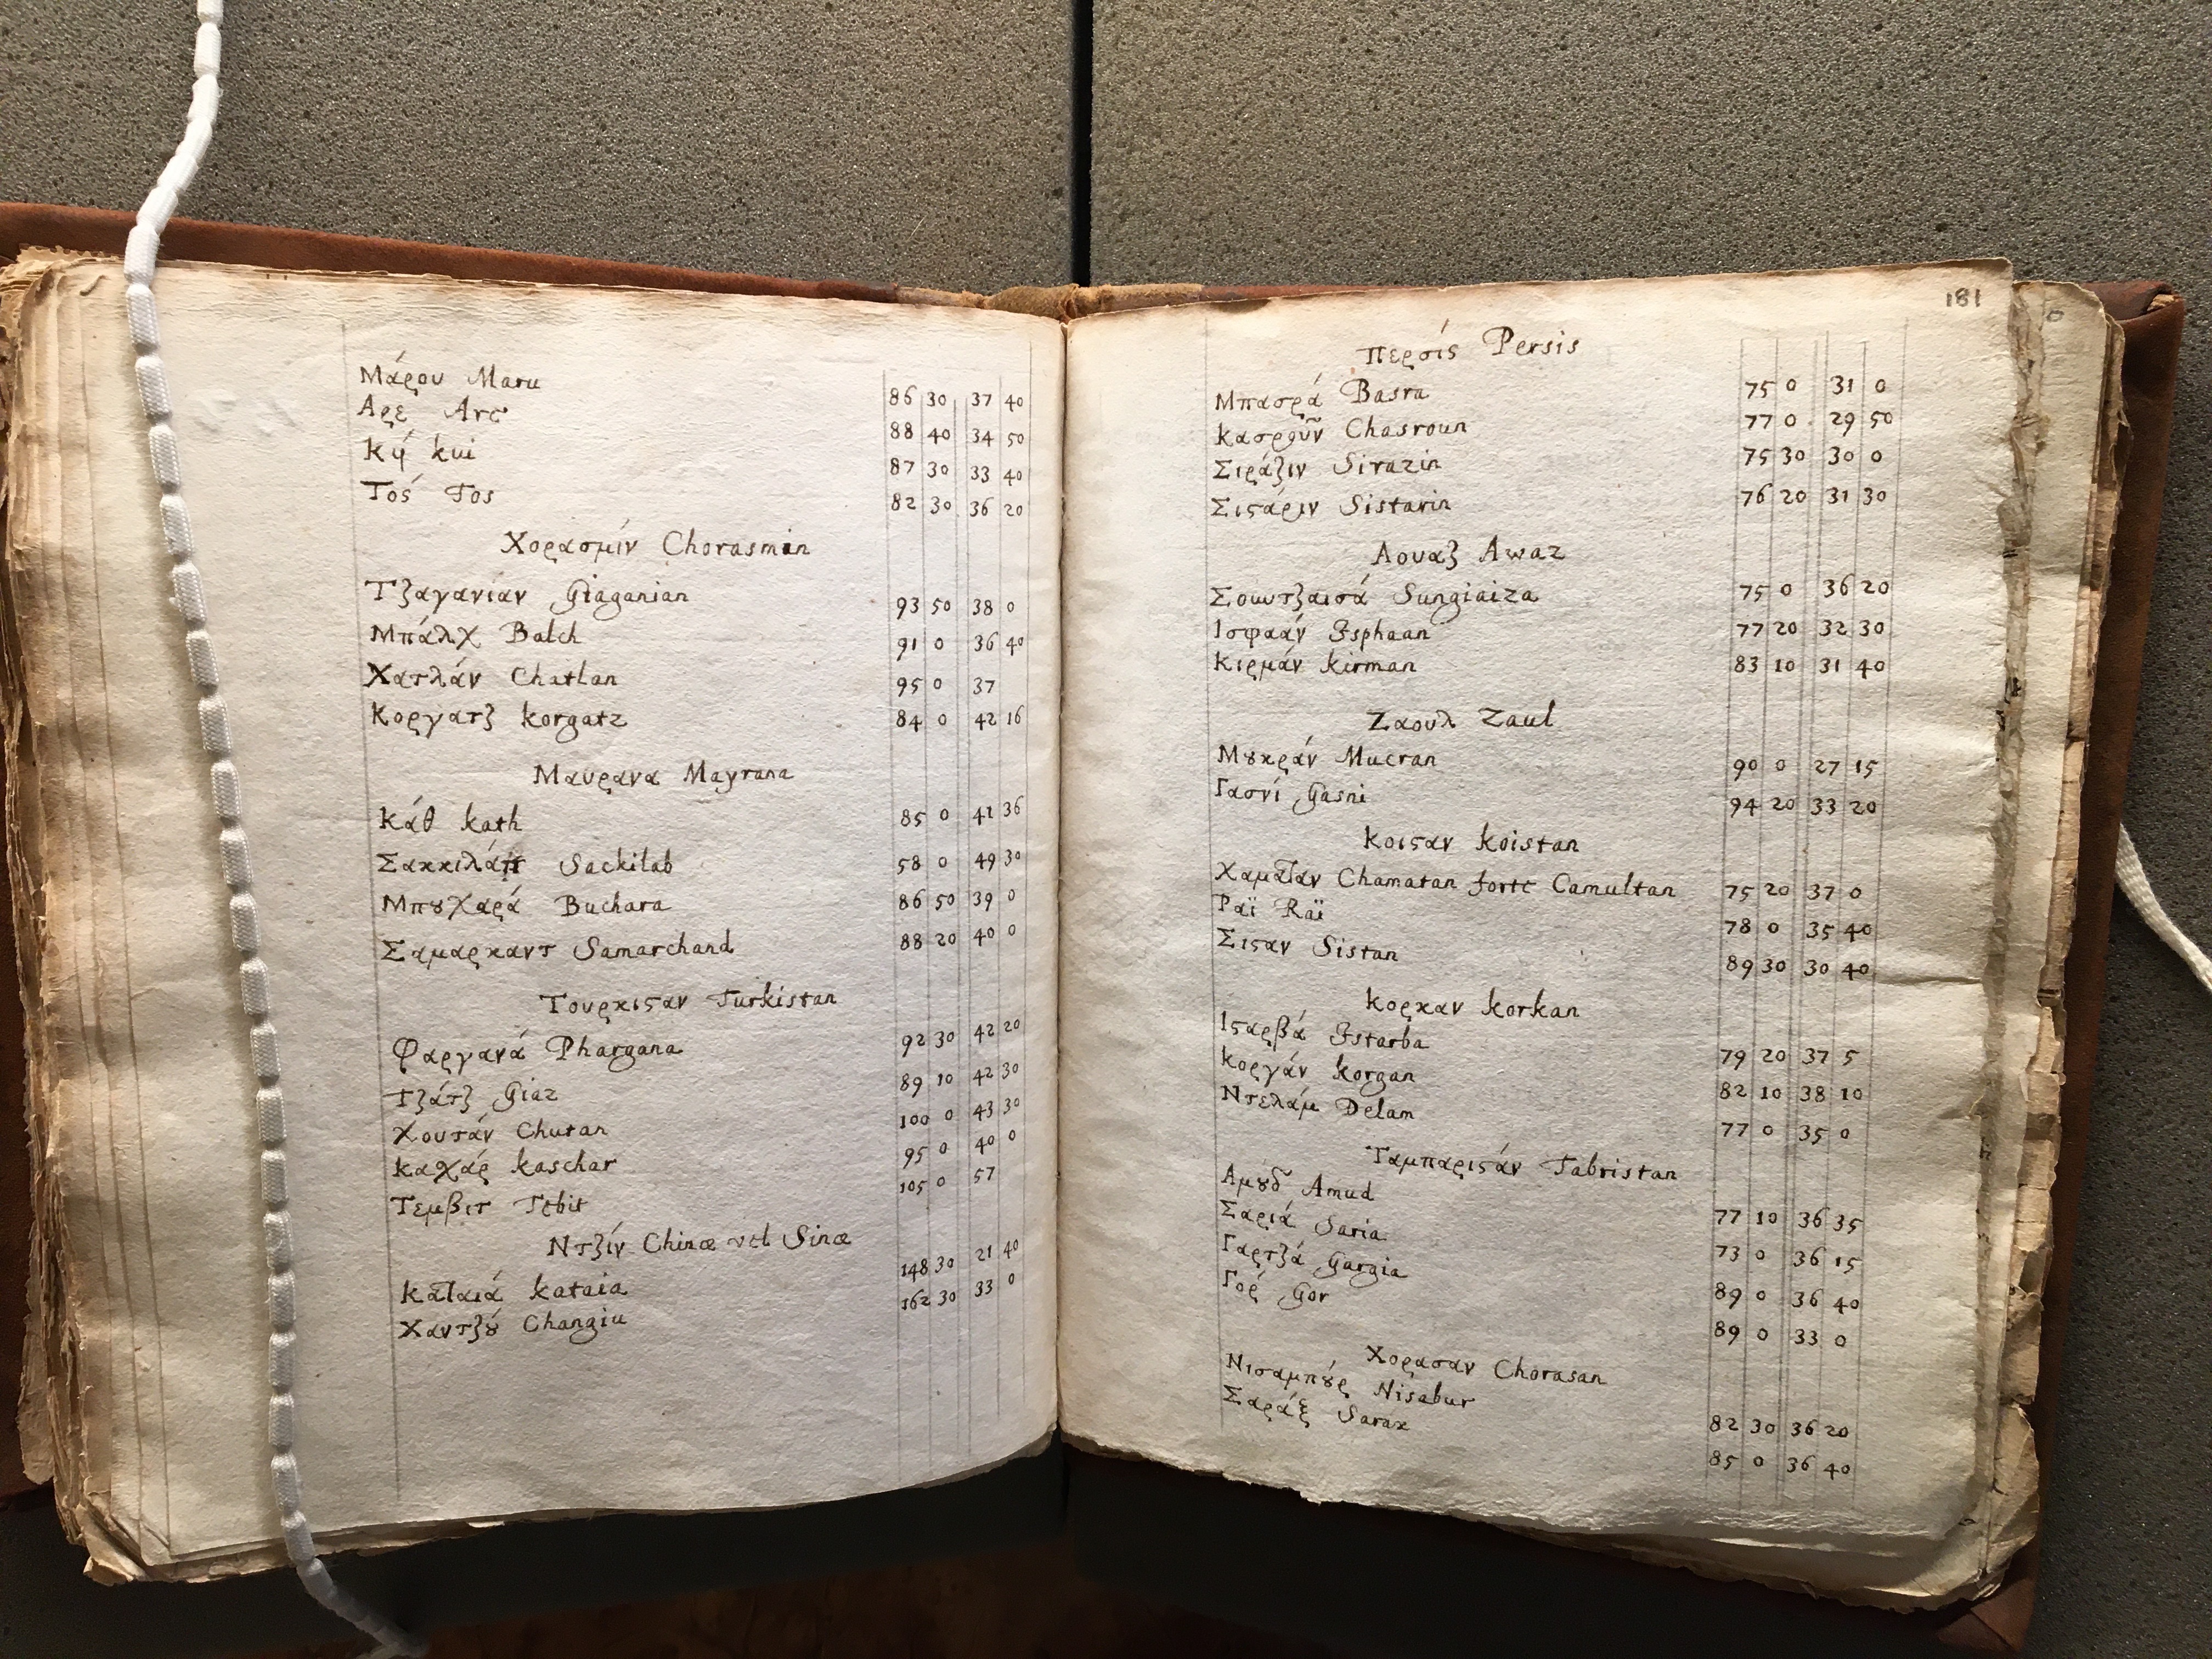 Μάρου Maru 86 30 37 40
Αρε Are 88 40 34 50
Κύ kui 87 30 33 40
Τός Tos 82 30 36 20
Χορασμίν Chorasmin
Τζαγανίαν Giaganian 93 50 38 0
Μπάλχ Balch 91 0 36 40
Χατλάν Chatlan 95 0 37
Κοργατζ korgatz 84 0 42 16
Μαυρανα Mayrana
Κάθ kath 85 0 41 36
Σακκιλάπ Sackilab 58 0 49 30
Μπȣχαρά Buchara 86 50 39 0
Σαμαρκαντ Samarchand 88 20 40 0
Τουρκιϛαν Turkistan
Φαργανά Phargana 92 30 42 20
Τζάτζ Giaz 89 10 42 30
Χουτάν Chutan 100 0 43 30
Καχάρ kaschar 95 0 40 0
Τεμβιτ Tebit 105 0 57
Ντζίν Chinæ vel Sinæ
Καταιά kataia 148 30 21 40
Χαντζȣ́ Changiu 162 30 33 0
181
Περσίς Persis
Μπασρά Basra 75 0 31 0
Κασροῦν Chasroun 77 0 29 50
Σιράζιν Sirazin 75 30 30 0
Σιϛάριν Sistarin 76 20 31 30
Αουαζ Awaz
Σουντζαισά Sungiaiza 75 0 36 20
Ισφαάν Isphaan 77 20 32 30
Κιρμάν kirman 83 10 31 40
Ζαουλ Zaul
Μȣκράν Mucran 90 0 27 15
Γασνί Gasni 94 20 33 20
Κοιϛαν koistan
Χαματαν Chamatan forte Camultan 75 20 37 0
Ραϊ Raï 78 0 35 40
Σιϛαν Sistan 89 30 30 40
Κορκαν korkan
Ιϛαρβά Istarba 79 20 37 5
Κοργάν korgan 82 10 38 10
Ντελάμ Delam 77 0 35 0
Ταμπαριϛάν Tabristan
Αμȣδ Amud 77 10 36 35
Σαριά Saria 73 0 36 15
Γαρτζά Gargia 89 0 36 40
Γορ Gor 89 0 33 0
Χορασαν Chorasan
Νισαμπȣ́ρ Nisabur 82 30 36 20
Σαράξ Sarax 85 0 36 40